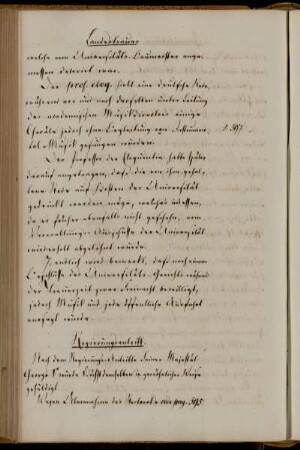 Landestrauer
welche vom Universitäts-Baumeister ange-
messen decorirt war.
Der prof. eloq. hielt eine deutsche Rede,
während vor und nach derselben unter Leitung
des academischen Musikdirectors einige
Choräle jedoch ohne Begleitung von Instrumen- p. 397.
tal-Musik gesungen wurden.
Der Professor der Eloquenz hatte später
darauf angetragen, daß die von ihm gehal-
tene Rede auf Kosten der Universität
gedruckt werden möge, welches indessen,
da es früher ebenfalls nicht geschehen, vom
Verwaltungs-Ausschusse der Universität
wiederholt abgelehnt wurde.
Endlich wird bemerkt, daß nach einem
Beschlusse des Universitäts-Gerichts während
der Trauerzeit zwar bewilligt,
jedoch Musik und jede öffentliche Auffahrt
untersagt wurde.
Regierungsantritt.
Nach dem Regierungs-Antritte Seiner Majestät
George V wurde Höchstdemselben in gewöhnlicher Weise
gehuldigt.
Wegen Übernahme des Rectorats vide pag. 395